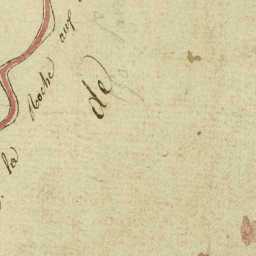 la Roche aux
de